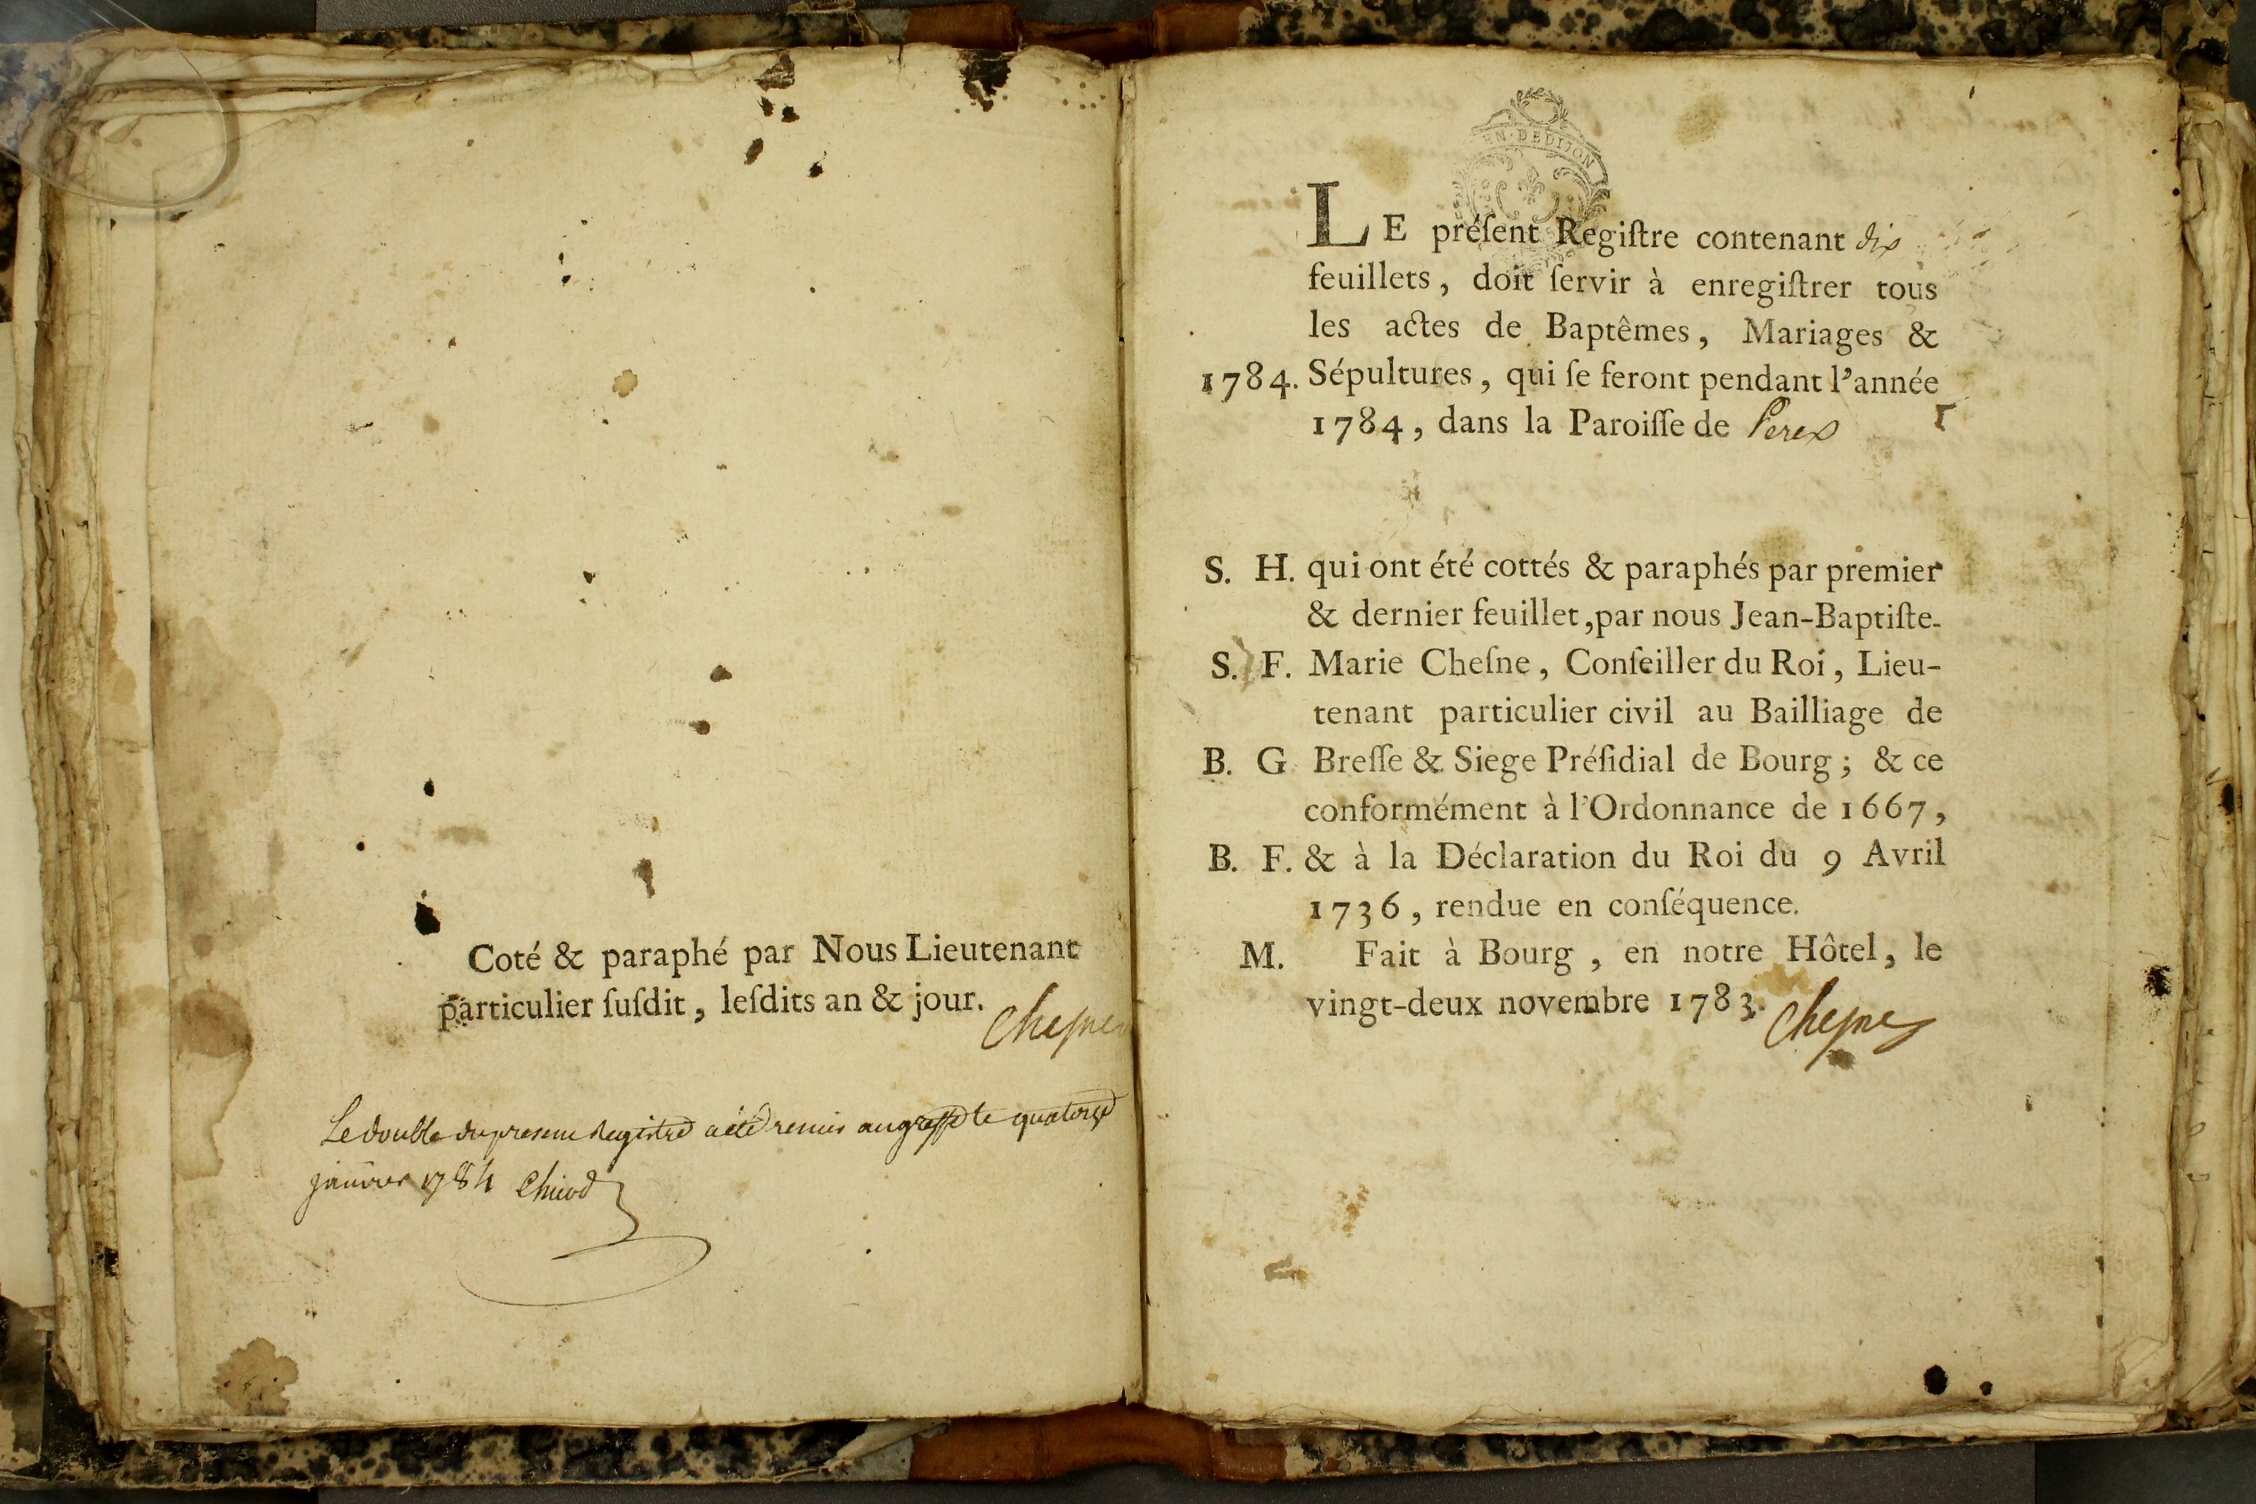 Coté & paraphé par Nous Lieutenant
particulier ſuſdit, leſdits an & jour. Cheſne
Le double du present Registre a été remis au greffe le quatorze
janvier 1784
EN·DEDIJON
LE préſent Regiſtre contenant dix
feuillets, doit ſervir à enregiſtrer tous
les actes de Baptêmes, Mariages &
1784. Sépultures, qui ſe feront pendant l'année
1784, dans la Paroiſſe de Perex
1
S. H. qui ont été cottés & paraphés par premier
& dernier feuillet, par nous Jean-Baptiſte-
S. F. Marie Cheſne, Conſeiller du Roi, Lieu-
tenant particulier civil au Bailliage de
B. G Breſſe & Siege Préſidial de Bourg; & ce
conformément à l'Ordonnance de 1667,
B. F. & à la Déclaration du Roi du 9 Avril
1736, rendue en conſéquence.
M. Fait à Bourg, en notre Hôtel, le
vingt-deux novembre 1783. Cheſne